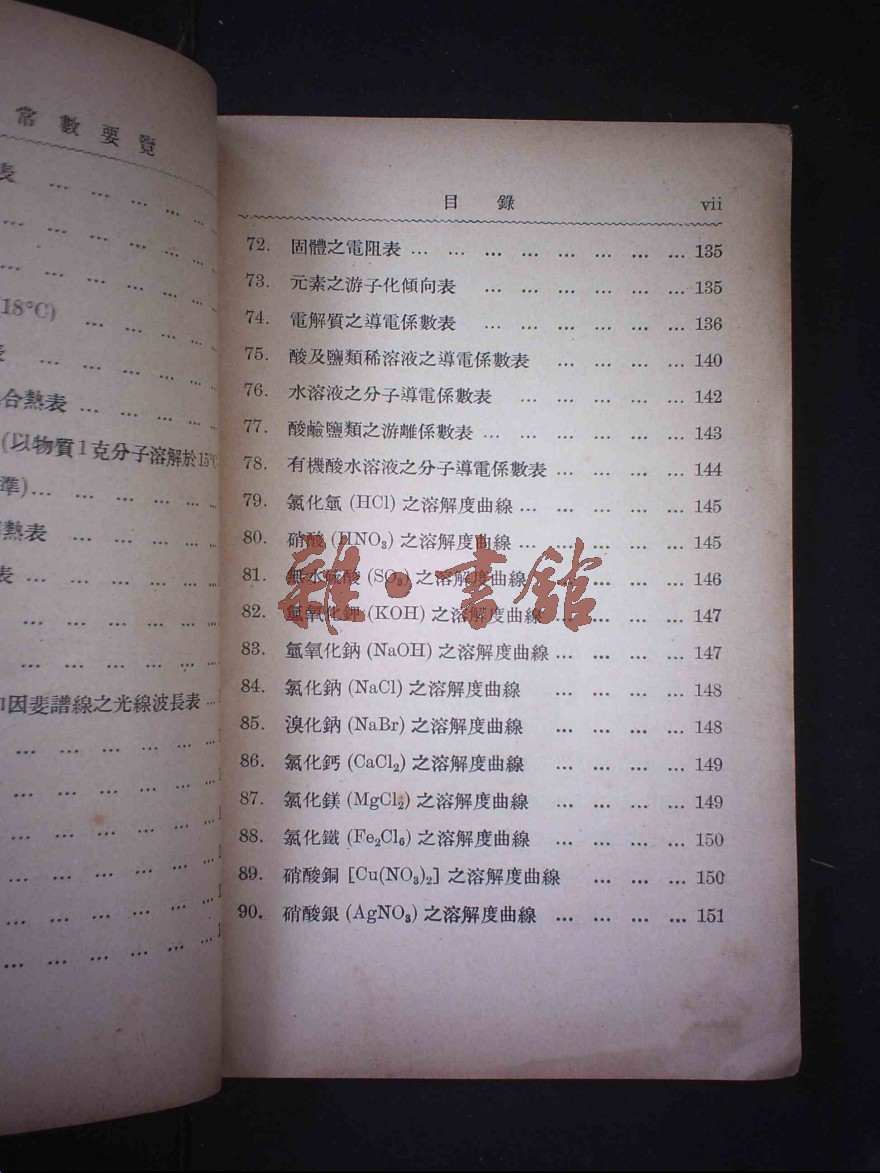 常數要覽
表 … … … … …
… … … … …
… … … … …
(18°C) … … … …
… … … … …
合熱表 … … … …
(以物質1克分子溶解於15°C
準)… … … … …
熱表 … … … … …
表 … … … … …
… … … … …
… … … … …
因斐譜線之光線波長表 …
… … … … …
… … … … …
… … … … …
… … … … …
… … … … …
… … … … …
目錄 vii
72. 固體之電阻表 … … … … … … … … 135
73. 元素之游子化傾向表 … … … … … … 135
74. 電解質之導電係數表 … … … … … … 136
75. 酸及鹽類稀溶液之導電係數表 … … … … 140
76. 水溶液之分子導電係數表 … … … … … 142
77. 酸鹼鹽類之游離係數表 … … … … … … 143
78. 有機酸水溶液之分子導電係數表 … … … … 144
79. 氯化氫 (HCl) 之溶解度曲線 … … … … … 145
80. 硝酸 (HNO₃) 之溶解度曲線 … … … … … 145
81. 無水硫酸 (SO₃) 之溶解度曲線 … … … … 146
82. 氫氧化鉀 (KOH) 之溶解度曲線 … … … … 147
83. 氫氧化鈉 (NaOH) 之溶解度曲線 … … … … 147
84. 氯化鈉 (NaCl) 之溶解度曲線 … … … … 148
85. 溴化鈉 (NaBr) 之溶解度曲線 … … … … 148
86. 氯化鈣 (CaCl₂) 之溶解度曲線 … … … … 149
87. 氯化鎂 (MgCl₂) 之溶解度曲線 … … … … 149
88. 氯化鐵 (Fe₂Cl₆) 之溶解度曲線 … … … … 150
89. 硝酸銅 [Cu(NO₃)₂] 之溶解度曲線 … … … 150
90. 硝酸銀 (AgNO₃) 之溶解度曲線 … … … … 151
雜·書館